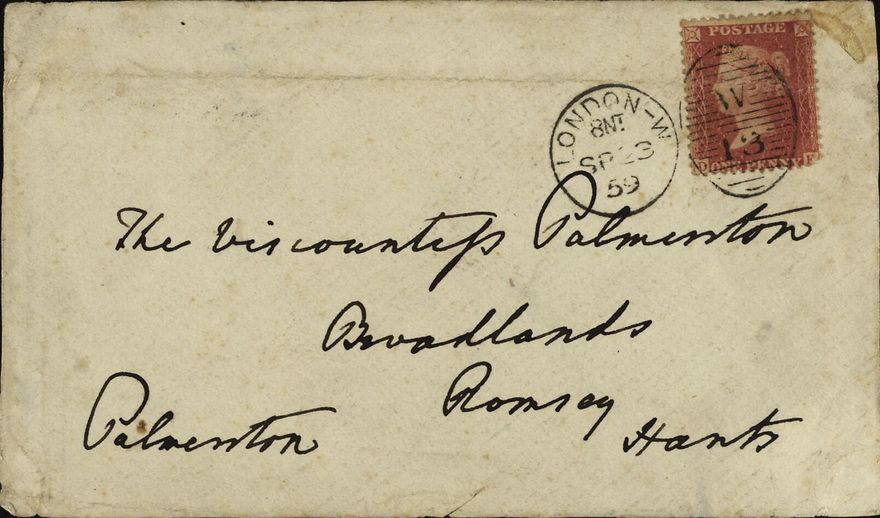 POSTAGE
ONE PENNY
W
13
LONDON-W
8NT
SP 23
59
The Viscountess Palmerston
Broadlands
Romsey
Hants
Palmerston